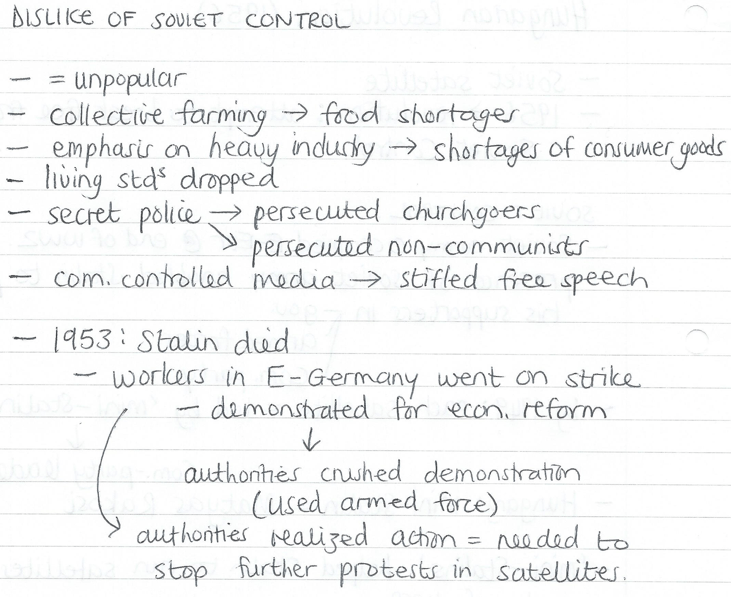 DISLIKE OF SOVIET CONTROL
- = unpopular
- collective farming → food shortages
- emphasis on heavy industry → shortages of consumer goods
- living stds dropped
- secret police → persecuted churchgoers
↘ persecuted non-communists
- com. controlled media → stifled free speech
- 1953: Stalin died
- workers in E-Germany went on strike
- demonstrated for econ. reform
↓
authorities crushed demonstration
(used armed force)
authorities realized action = needed to
stop further protests in satellites.